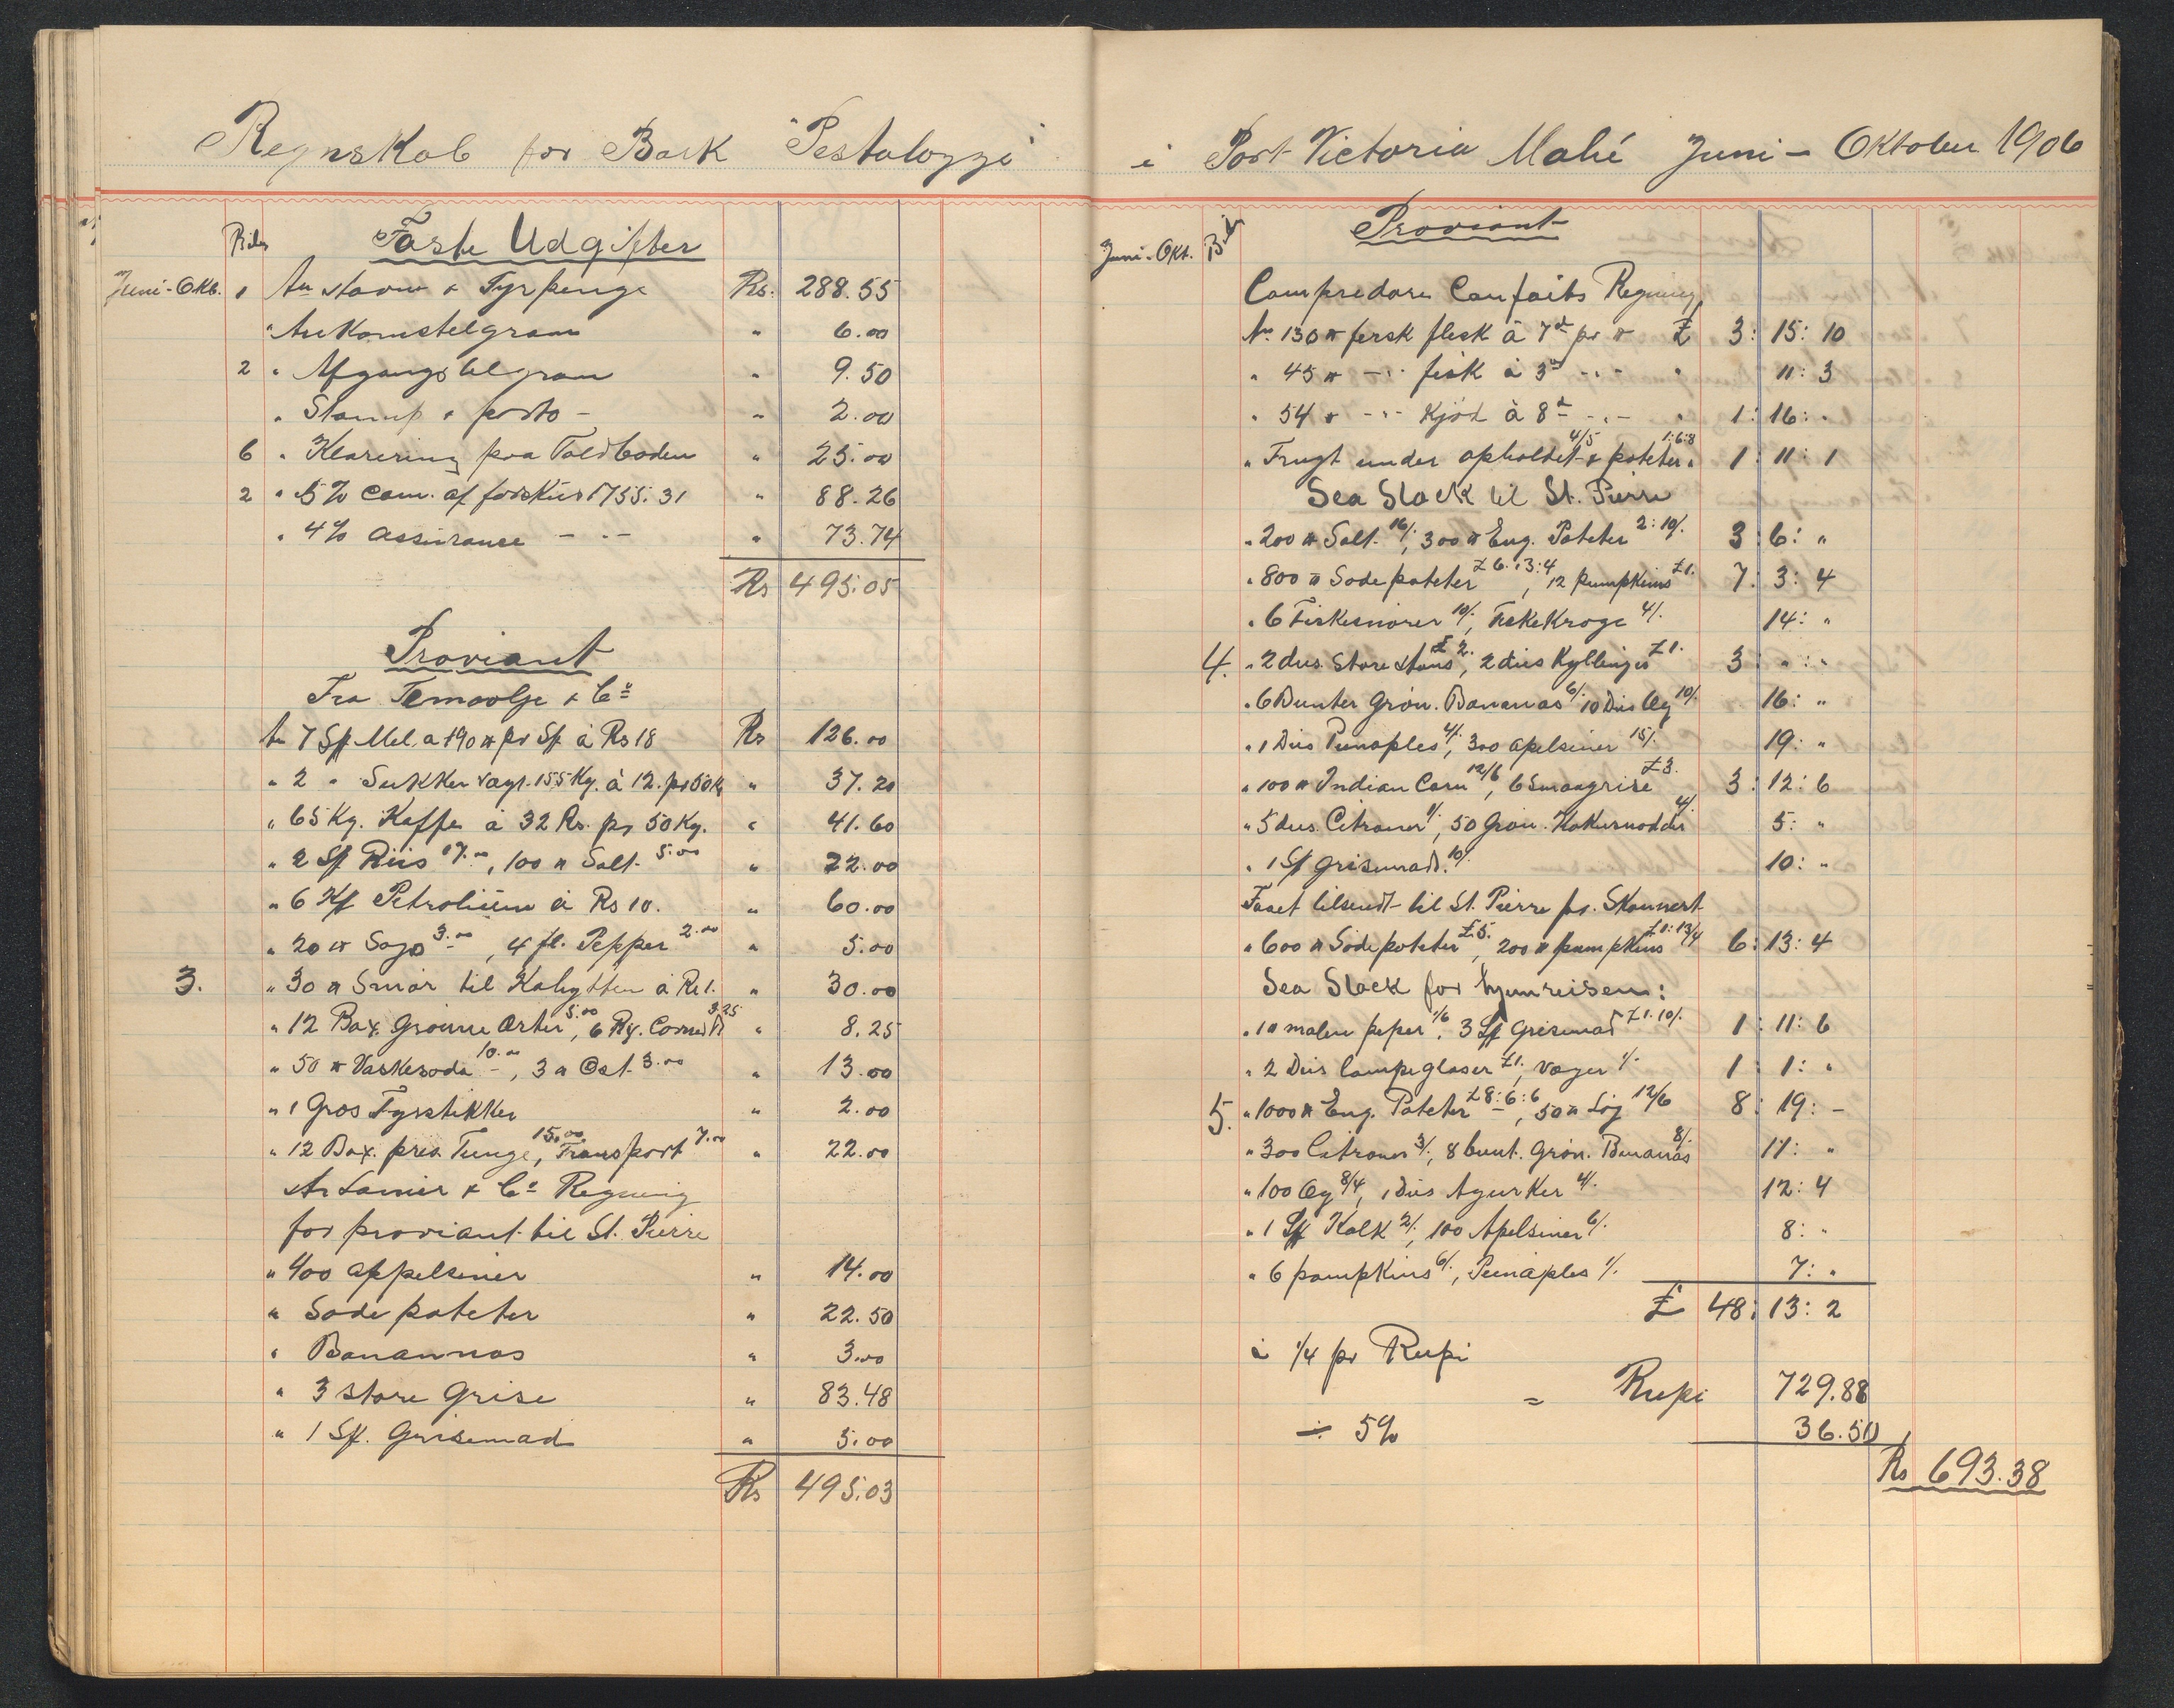 Regnskab for Bark "Pestalozzi" i Port Victoria Mahé Juni - Oktober 1906
Bilag Faste Udgifter
Juni-Okt. 1 An Havne & Fyrpenge Rs. 288.55
" Ankomstelgram " 6.00
2 " Afgangstelgram " 9.50
" Stamp & porto - " 2.00
6 " Klarering paa Toldboden " 25.00
2 " 5% Com. af forskud 1755.31 " 88.26
" 4% assurance - " - " 73.74
Rs 495.05
Proviant
Fra Temoolje & Co
An 7 Sk Mel. a 190 ℔ pr Sk à Rs 18 Rs 126.00
" 2 " Sukker vægt. 155 Kg. à 12. pr 50 K " 37.20
" 65 Kg. Kaffe à 32 Rs. pr 50 Kg. " 41.60
" 2 Sk Riis 17.00, 100 ℔ Salt. 5.00 " 22.00
" 6 Ks Petrolium à Rs 10. " 60.00
" 20 ℔ Sago 3.00, 4 fl. Pepper 2.00 " 5.00
3. " 30 ℔ Smør til Kahytten à Re 1. " 30.00
" 12 Box. Grønne Erter 5.00, 6 Corned 3.25 " 8.25
" 50 ℔ Vaskesoda 10.00 -, 3 ℔ Ost. 3.00 " 13.00
" 1 Gros Fyrstikker " 2.00
" 12 Box. pres. Tunge 15.00, Transport 7.00 " 22.00
Co Regning
for proviant til St. Pierre
" 400 appelsiner " 14.00
" Søde poteter " 22.50
" Banannas " 3.00
" 3 store Grise " 83.48
" 1 Sk. Grisemad " 5.00
Rs 495.03
Juni-Okt. Bil. Proviant
Compredore Confaits Regning
An 130 ℔ fersk flesk à 7d pr ℔ £ 3: 15: 10
" 45 ℔ - " - fisk à 3d - " - " 11: 3
" 54 ℔ - " - Kjød à 8d - " - " 1: 16: "
" Frugt under opholdet 4/5 & poteter 1:6:8 " 1: 11: 1
Sea Stock til St. Pierre
" 200 ℔ Salt. 16/., 300 ℔ Eng. Poteter 2:10/. 3: 6: "
" 800 ℔ Søde poteter £6:13:4, 12 pumpkins £1. 7: 3: 4
" 6 Fiskesnører 10/., Fiskekroge 4/. 14: "
4. " 2 dus. Store Høns £2., 2 dus Kyllinger £1. 3 " : "
" 6 Bunter Grøn. Bananas 6/. 10 Dus Æg 10/. 16: "
" 1 Dus Pinaples 4/., 300 apelsiner 15/. 19: "
" 100 ℔ Indian Corn 12/6, 6 Smaagrise £3. 3: 12: 6
" 5 dus. Citroner 1/., 50 Grøn. Kokusnødder 4/. 5: "
" 1 Sk grisemad. 10/. 10: "
Faaet tilsendt til St. Pierre pr. Skonnert
" 600 ℔ Søde poteter £5., 200 ℔ pumpkins £1:13/4 6: 13: 4
Sea Stock for hjemreisen:
" 1 ℔ malen peper 1/6, 3 Sk Grisemad £1.10/. 1: 11: 6
" 2 Dus lampeglaser £1., Væger 1/. 1 1: "
5. " 1000 ℔ Eng. Poteter £8:6:6, 50 ℔ Løg 12/6 8: 19: -
" 300 Citroner 3/., 8 bunt. Grøn. Bananas 8/. 11: "
" 100 Æg 8/4, 1 Dus Agurker 4/. 12: 4
" 1 Sk Kalk 2/., 100 Apelsiner 6/. 8: "
" 6 pompkins 6/., Pinaples 1/. 7: "
£ 48: 13: 2
à 1/4 pr Rupi
= Rupi 729.88
÷ 5% 36.50
Rs 693.38